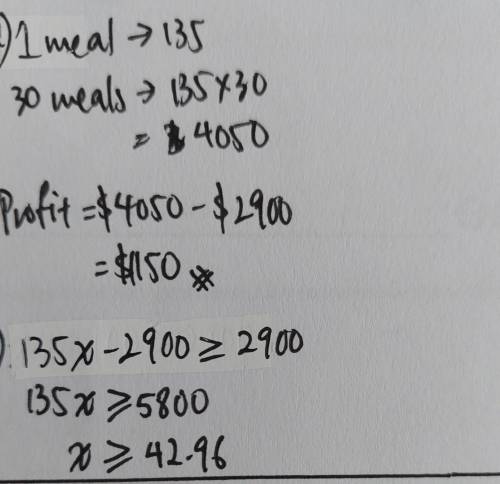 ) 1 meal → 135
30 meals → 135×30
= 4050
Profit = $4050 - $2900
= $1150 *
) 135x - 2900 ≥ 2900
135x ≥ 5800
x ≥ 42.96